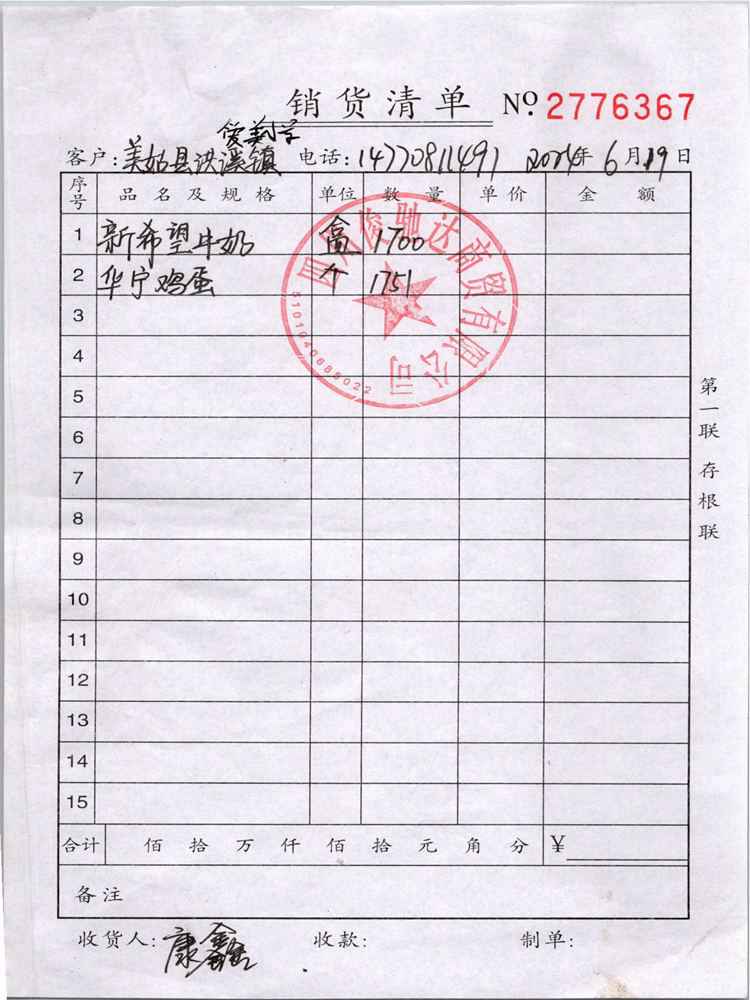 销货清单 No. 2776367
爱美小学
客户:美姑县洪溪镇 电话:14770811491 2024年6月19日
序号 品名及规格 单位 数量 单价 金额
1 新希望牛奶 盒 1700
2 华宁鸡蛋 个 1751
3
4
5
6
7
8
9
10
11
12
13
14
15
合计 佰 拾 万 仟 佰 拾 元 角 分 ¥
备注
收货人:康鑫 收款: 制单:
第一联 存根联
四川俊驰达商贸有限公司